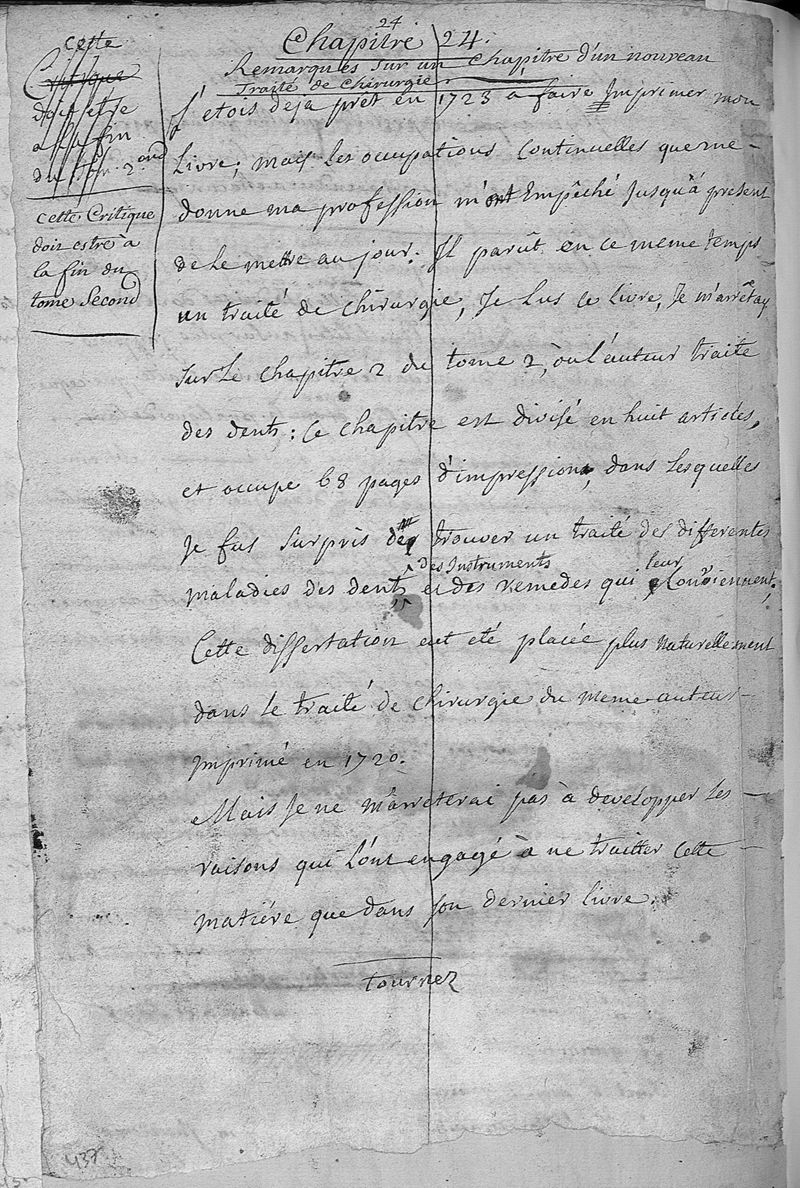 24
Chapitre 24.
Remarques sur un Chapitre d'un nouveau
Traité de Chirurgie
cette
Critique
doit estre
a la fin
du tom. 2.ond
cette Critique
doit estre à
la fin du
tome Second
J'etois deja prêt en 1723 à faire Imprimer mon
Livre; mais les occupations continuelles que me
donne ma profession m'ont Empêché Jusqu'à present
de le mettre au jour: Il parût en ce meme temps
un traité de chirurgie, Je Lus ce livre, Je m'arrêtay
sur Le chapitre 2 du tome 2, où l'auteur traite
des dents: Ce chapitre est divisé en huit articles,
et occupe 68 pages d'impression, dans lesquelles
je fus surpris de trouver un traité des differentes
des Instruments leur
maladies des dents et des remedes qui Conviennent;
Cette dissertation eut eté placée plus naturellement
dans le traité de chirurgie du meme auteur
Imprimé en 1720.
Mais Je ne m'arreterai pas à developper les
raisons qui l'ont engagé à ne traitter Cette
matiére que dans son dernier livre.
tournez
437